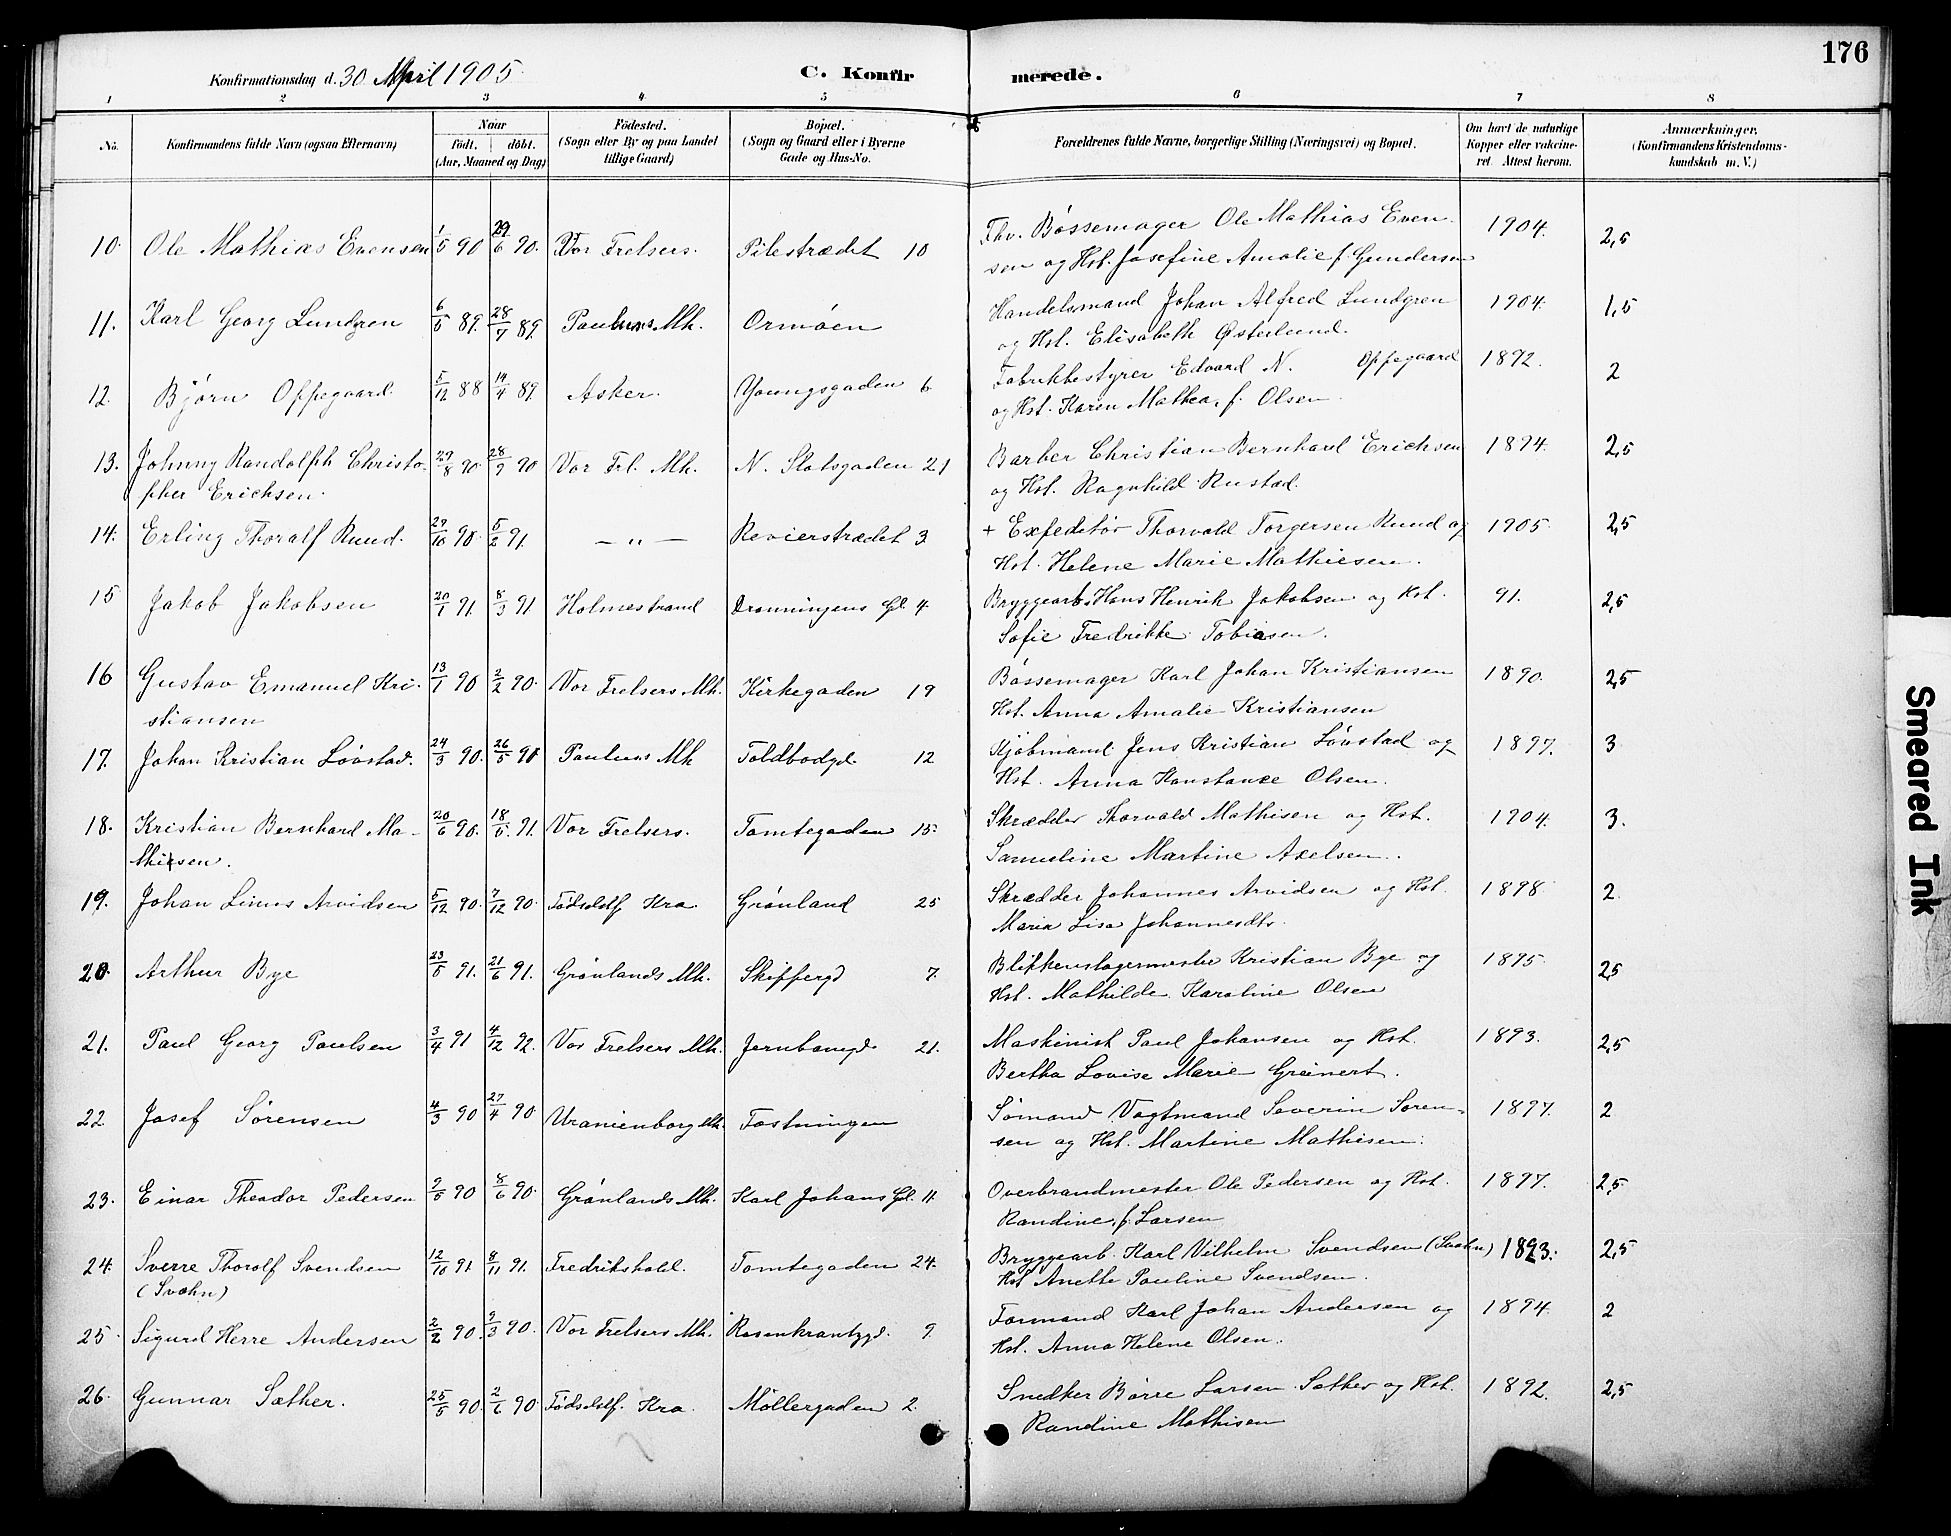 176
Konfirmationsdag d. 30 April 1905.
C. Konfirmerede.
1 2 3 4 5 6 7 8
No. Konfirmandens fulde Navn (ogsaa Efternavn) Naar Født. døbt. (Aar, Maaned og Dag) Fødested. (Sogn eller By og paa Landet tillige Gaard) Bopæl. (Sogn og Gaard eller i Byerne Gade og Hus-No. Forældrenes fulde Navne, borgerlige Stilling (Næringsvei) og Bopæl. Om havt de naturlige Kopper eller vakcineret. Attest herom. Anmærkninger. (Konfirmandens Kristendomskundskab m. V.)
10. Ole Mathias Evensen 1/5 90 29/6 90. Vor Frelsers. Pilestrædet 10 Fhv. Bøssemager Ole Mathias Even- 1904. 2,5
sen og Hst. Josefine Amalie f. Gundersen
11. Karl Georg Lundgren 6/5 89. 28/7 89. Paulus Mh. Ormøen Handelsmand Johan Alfred Lundgren 1904. 1,5
og Hst. Elisabeth Østerlund.
12. Bjørn Oppegaard 5/12 88 14/4 89. Asker. Youngsgaden 6 Fabrikbestyrer Edvard N. Oppegaard 1892. 2
og Hst. Karen Mathea, f. Olsen.
13. Johnny Randolph Christo- 29/8 90 28/9 90 Vor Frl. Mh. N. Slotsgaden 21 Barber Christian Bernhard Erichsen 1894. 2,5
pher Erichsen. og Hst. Ragnhild Rustad.
14. Erling Thoralf Ruud. 27/10 90. 5/2 91. — " — Revierstrædet 3. + Expeditør Thorvald Torgersen Ruud og 1905. 2,5
Hst. Helene Marie Mathiesen.
15 Jakob Jakobsen 20/1 91. 8/3 91. Holmestrand Dronningens Gd. 4 Bryggearb. Hans Henrik Jakobsen og Hst. 91. 2,5
Sofie Fredrikke Tobiasen.
16 Gustav Emanuel Kri- 13/1 90 2/2 90. Vor Frelsers Mh. Kirkegaden 19 Bøssemager Karl Johan Kristiansen 1890. 2,5
stiansen Hst. Anna Amalie Kristiansen
17. Johan Kristian Løvstad. 24/3 90. 26/5 90 Paulus Mh Toldbodgd. 12 Kjøbmand Jens Kristian Løvstad og 1897. 3
Hst. Anna Konstanse Olsen.
18. Kristian Bernhard Ma- 20/6 90. 18/5. 91. Vor Frelsers. Tomtegaden 15 Skrædder Thorvald Mathisen og Hst. 1904. 3.
thisen. Samueline Martine Axelsen.
19. Johan Linus Arvidsen 5/12 90. 7/12 90. Fødselstf. Kra. Grønland 25 Skrædder Johannes Arvidsen og Hst. 1898. 2.
Maria Lisa Johannesdtr.
20. Arthur Bye 23/5 91. 21/6 91. Grønlands Mh. Skippergd 7. Blikkenslagermester Kristian Bye og 1895 2,5
Hst. Mathilde Karoline Olsen
21. Paul Georg Paulsen 3/4 91 4/12 92. Vor Frelsers Mh. Jernbanegd. 21. Maskinist Paul Johansen og Hst. 1893. 2,5
Bertha Lovise Marie Greinert.
22. Josef Sørensen 4/3 90 27/4 90 Uranienborg Mh. Fæstningen Sømand Vagtmand Severin Søren- 1897. 2
sen og Hst. Martine Mathisen.
23. Einar Theodor Pedersen 9/5 90 8/6 90. Grønlands Mh. Karl Johans Gd. 11. Overbrandmester Ole Pedersen og Hst. 1897. 2,5
Randine, f. Larsen
24. Sverre Thorolf Svendsen 12/10 91. 8/11 91. Fredrikshald. Tomtegaden 24. Bryggearb. Karl Vilhelm Svendsen (Svahn) 1893. 2,5
(Svahn) Hst Anette Pauline Svendsen.
25. Sigurd Herre Andersen 2/2 90. 9/3 90. Vor Frelsers Mh. Rosenkrantzgd. 9. Formand Karl Johan Andersen og 1894. 2
Hst. Anna Helene Olsen.
26. Gunnar Sæther. 25/5 90. 2/6 90. Fødselstf. Kra. Møllergaden 2. Snedker Børre Larsen Sæther og Hst. 1892. 2,5
Randine Mathisen
Smeared Ink